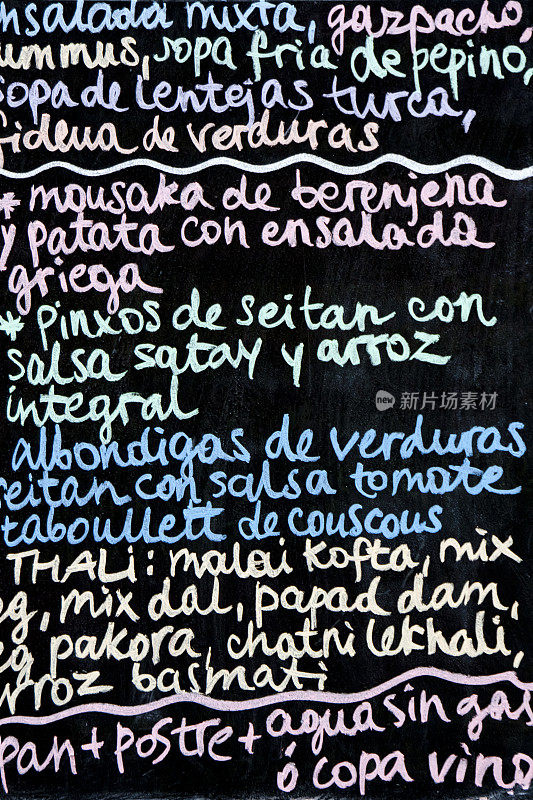 nsalada mixta, gazpacho,
ummus, sopa fria de pepino,
sopa de lentejas turca,
fideua de verduras
* mousaka de berenjena
y patata con ensalada
griega
* pinxos de seitan con
salsa satay y arroz
integral
albondigas de verduras
seitan con salsa tomate
taboullett de couscous
THALi: malai kofta, mix
eg, mix dal, papad dam,
eg pakora, chatni lekhali,
arroz basmati
pan + postre + agua sin gas
ó copa vino
new 新片场素材